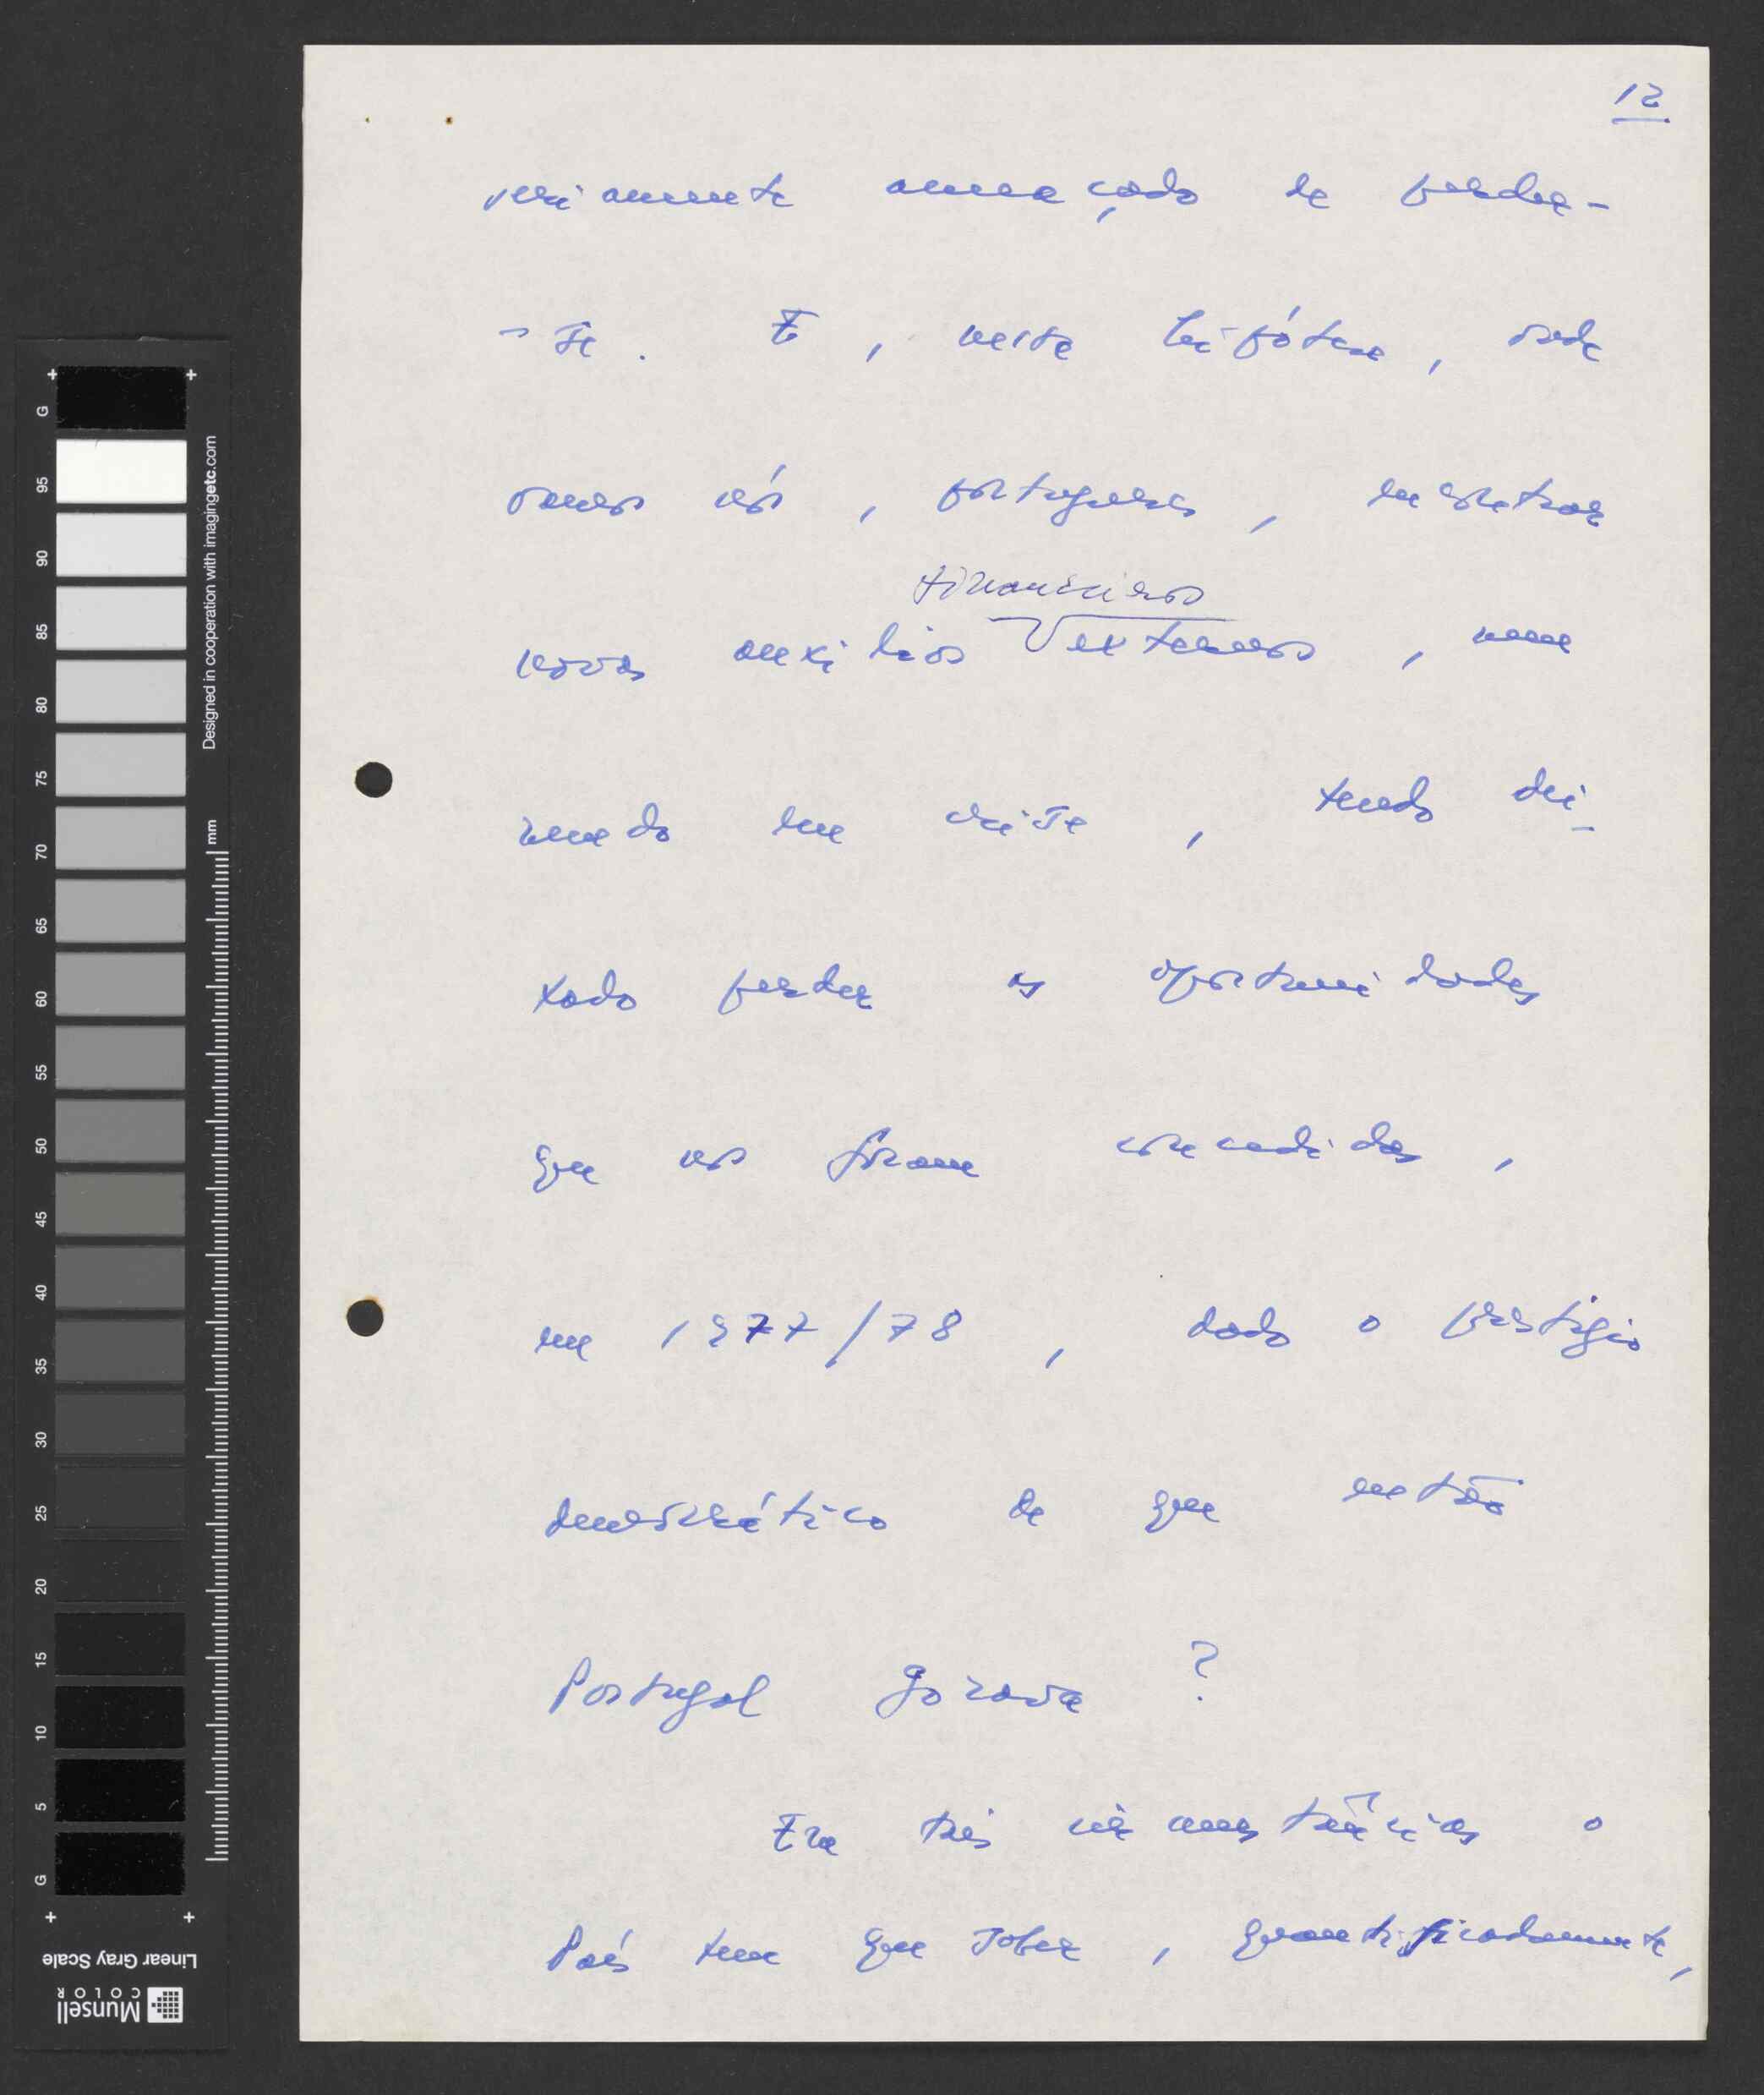 12
seriamente ameaçado de perder-
-se. E, nesta hipótese, onde
vamos nós, portugueses, encontrar
financeiros
novos auxílios externos, num
mundo em crise, tendo dei-
xado perder as oportunidades
que nos foram concedidas,
em 1977/78, dado o prestígio
democrático de que então
Portugal gozava?
Em tais circunstâncias o
País tem que saber, quantificadamente,
G 95 90 85 80 75 70 65 60 55 50 45 40 35 30 25 20 15 10 5 G
Designed in cooperation with imagingetc.com
mm
Linear Gray Scale
Munsell
COLOR